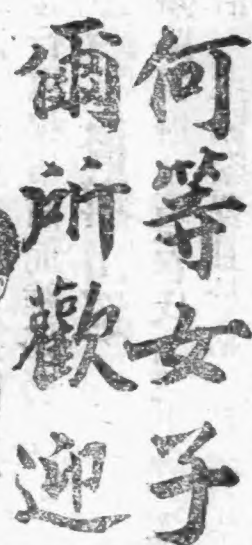 何等女子
爾所歡迎